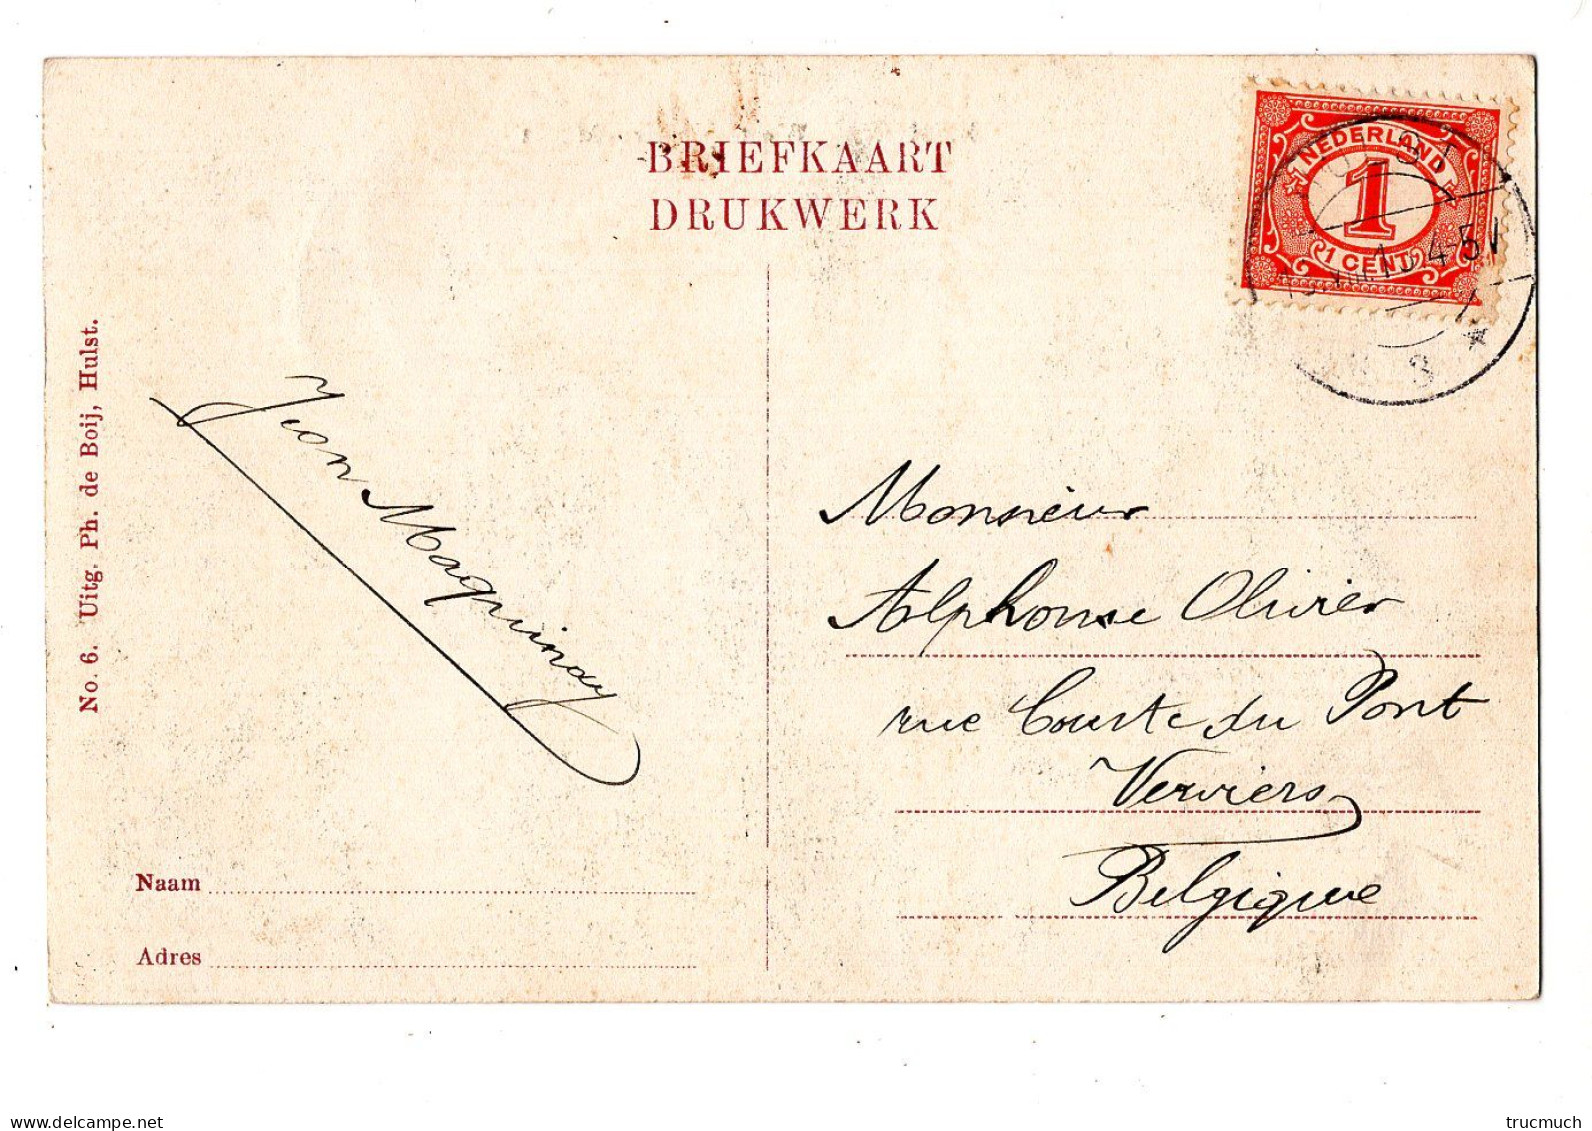 BRIEFKAART
DRUKWERK
NEDERLAND
1
1 CENT
4-5
3
No. 6. Uitg. Ph. de Boij, Hulst.
Maquinay
Monsieur
Alphonse Olivier
rue Courte du Pont
Verviers
Belgique
Naam
Adres
www.delcampe.net
trucmuch